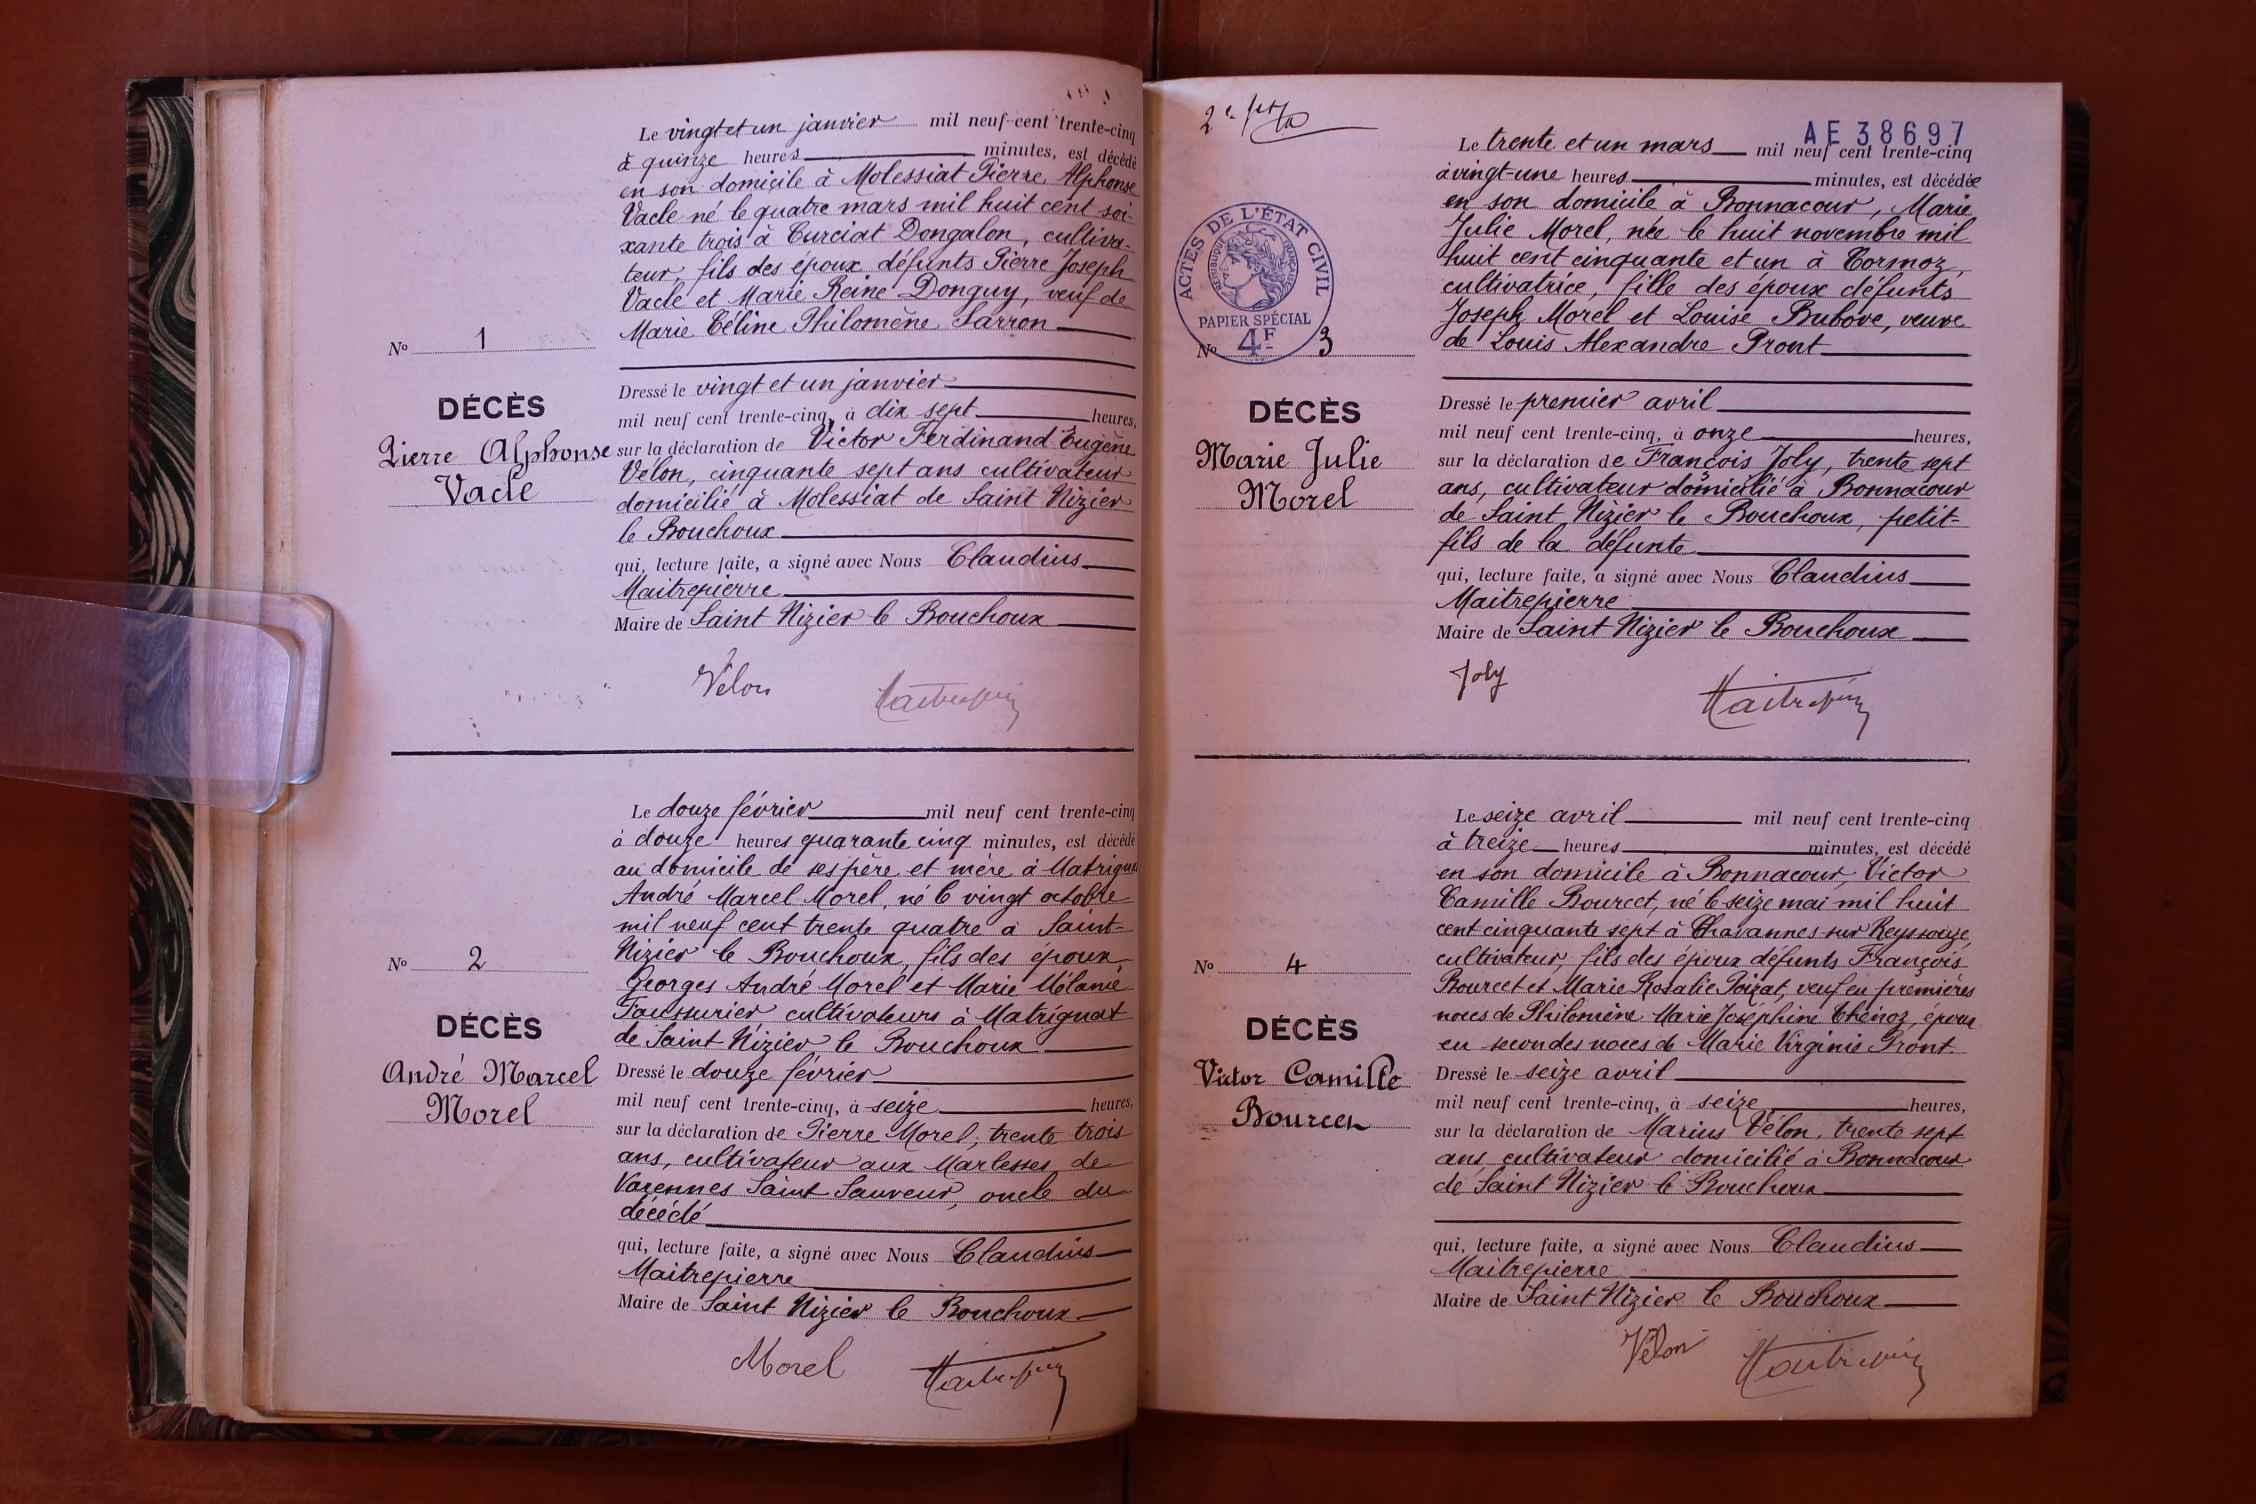 Le vingt et un janvier mil neuf cent trente-cinq
à quinze heures minutes, est décédé
en son domicile à Molessiat Pierre Alphonse
Vacle né le quatre mars mil huit cent soi-
xante trois à Curciat Dongalon, cultiva-
teur, fils des époux défunts Pierre Joseph
Vacle et Marie Reine Donguy, veuf de
Marie Céline Philomène Sarron
N° 1
DÉCÈS
Pierre Alphonse
Vacle
Dressé le vingt et un janvier
mil neuf cent trente-cinq, à dix sept heures,
sur la déclaration de Victor Ferdinand Eugène
Vélon, cinquante sept ans cultivateur
domicilié à Molessiat de Saint Nizier
le Bouchoux
qui, lecture faite, a signé avec Nous Claudius
Maitrepierre
Maire de Saint Nizier le Bouchoux
Vélon Maitrepierre
Le douze février mil neuf cent trente-cinq
à douze heures quarante cinq minutes, est décédé
au domicile de ses père et mère à Matrignat
André Marcel Morel, né le vingt octobre
mil neuf cent trente quatre à Saint-
Nizier le Bouchoux, fils des époux
Georges André Morel et Marie Mélanie
Faussurier cultivateurs à Matrignat
de Saint Nizier le Bouchoux
N° 2
DÉCÈS
André Marcel
Morel
Dressé le douze février
mil neuf cent trente-cinq, à seize heures,
sur la déclaration de Pierre Morel, trente trois
ans, cultivateur aux Marlesses de
Varennes Saint Sauveur, oncle du
décédé
qui, lecture faite, a signé avec Nous Claudius
Maitrepierre
Maire de Saint Nizier le Bouchoux
Morel Maitrepierre
AE38697
Le trente et un mars mil neuf cent trente-cinq
à vingt-une heures minutes, est décédée
en son domicile à Bonnacour, Marie
Julie Morel, née le huit novembre mil
huit cent cinquante et un à Cormoz,
cultivatrice, fille des époux défunts
Joseph Morel et Louise Bubove, veuve
de Louis Alexandre Pront
ACTES DE L'ÉTAT CIVIL
RÉPUBLIQUE FRANÇAISE
PAPIER SPÉCIAL
4F
N° 3
DÉCÈS
Marie Julie
Morel
Dressé le premier avril
mil neuf cent trente-cinq, à onze heures,
sur la déclaration de François Joly, trente sept
ans, cultivateur domicilié à Bonnacour
de Saint Nizier le Bouchoux, petit-
fils de la défunte
qui, lecture faite, a signé avec Nous Claudius
Maitrepierre
Maire de Saint Nizier le Bouchoux
Joly Maitrepierre
Le seize avril mil neuf cent trente-cinq
à treize heures minutes, est décédé
en son domicile à Bonnacour, Victor
Camille Bourcet, né le seize mai mil huit
cent cinquante sept à Chavannes sur Reyssouze,
cultivateur, fils des époux défunts François
Bourcet et Marie Rosalie Poizat, veuf en premières
noces de Philomène Marie Joséphine Chênoz, époux
en secondes noces de Marie Virginie Pront.
N° 4
DÉCÈS
Victor Camille
Bourcet
Dressé le seize avril
mil neuf cent trente-cinq, à seize heures,
sur la déclaration de Marius Vélon, trente sept
ans cultivateur domicilié à Bonnacour
de Saint Nizier le Bouchoux
qui, lecture faite, a signé avec Nous Claudius
Maitrepierre
Maire de Saint Nizier le Bouchoux
Vélon Maitrepierre